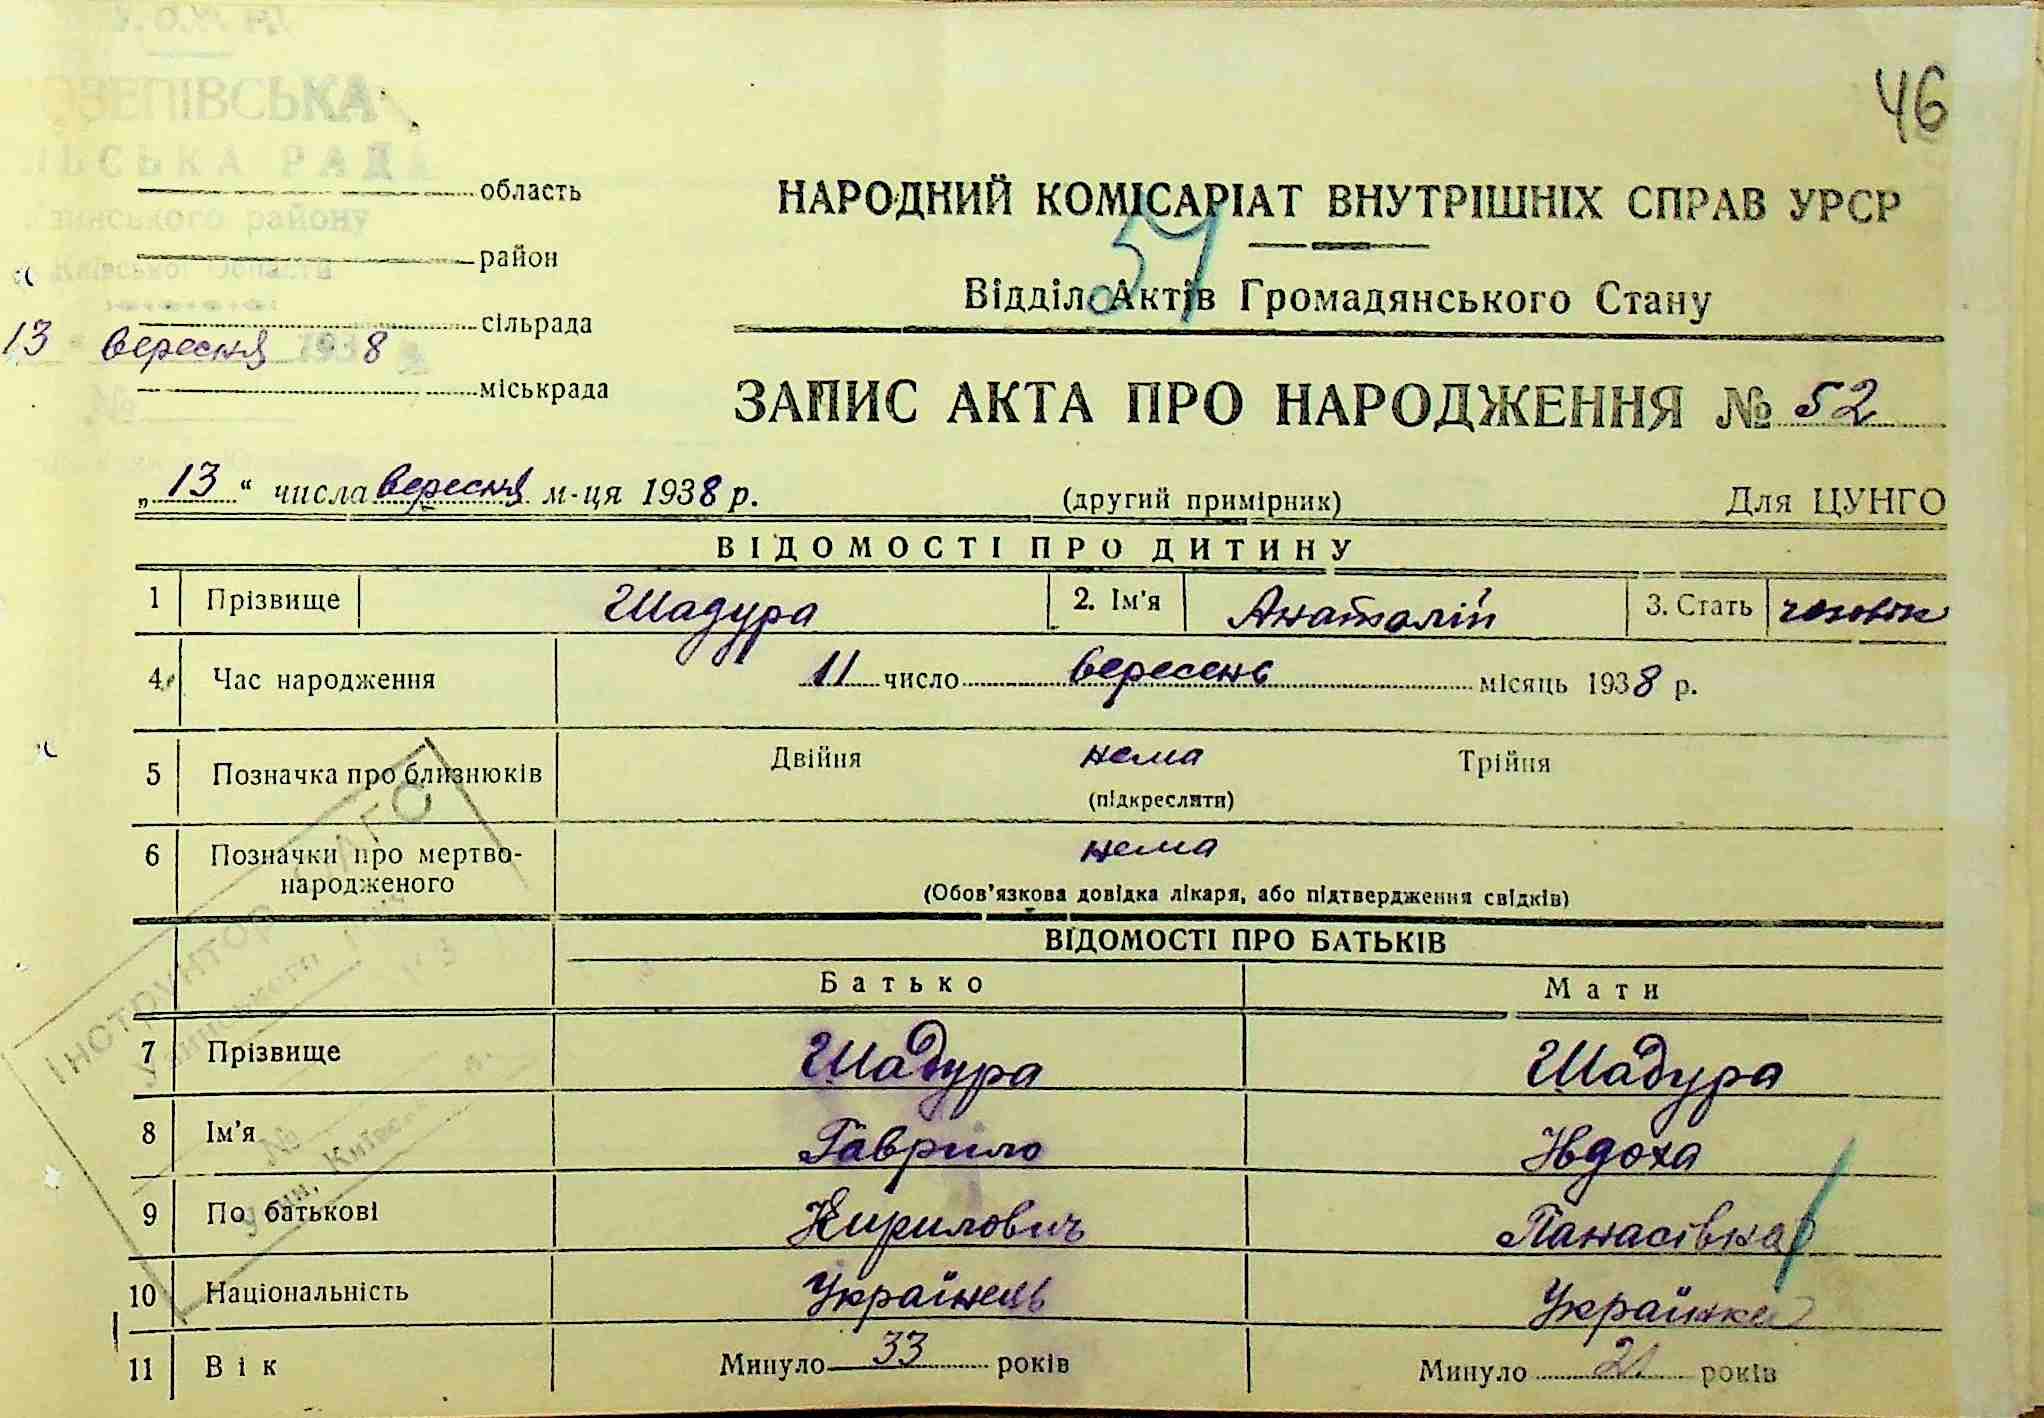 46
ОЗЕПІВСЬКА
ЛЬСЬКА РАДА
зинського району
Київської Області
13 вересня 1938
№
область
район
сільрада
міськрада
НАРОДНИЙ КОМІСАРІАТ ВНУТРІШНІХ СПРАВ УРСР
Відділ Актів Громадянського Стану
ЗАПИС АКТА ПРО НАРОДЖЕННЯ № 52
„13“ числа вересня м-ця 1938 р. (другий примірник) Для ЦУНГО
ВІДОМОСТІ ПРО ДИТИНУ
1 Прізвище Шадура 2. Ім'я Анаталій 3. Стать чоловік
4 Час народження 11 число вересень місяць 1938 р.
5 Позначка про близнюків Двійня нема Трійня
(підкреслити)
6 Позначки про мертво-
народженого нема
(Обов'язкова довідка лікаря, або підтвердження свідків)
ВІДОМОСТІ ПРО БАТЬКІВ
Батько Мати
7 Прізвище Шадура Шадура
8 Ім'я Гаврило Явдоха
9 По батькові Кирилович Панасівна
10 Національність Українець Українка
11 Вік Минуло 33 років Минуло 21 років